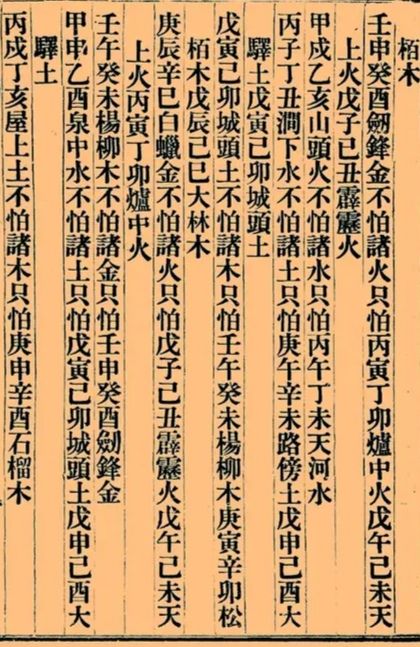 栢木
壬申癸酉劔鋒金不怕諸火只怕丙寅丁卯爐中火戊午己未天
上火戊子己丑霹靂火
甲戌乙亥山頭火不怕諸水只怕丙午丁未天河水
丙子丁丑澗下水不怕諸土只怕庚午辛未路傍土戊申己酉大
驛土戊寅己卯城頭土
戊寅己卯城頭土不怕諸木只怕壬午癸未楊柳木庚寅辛卯松
栢木戊辰己巳大林木
庚辰辛巳白蠟金不怕諸火只怕戊子己丑霹靂火戊午己未天
上火丙寅丁卯爐中火
壬午癸未楊柳木不怕諸金只怕壬申癸酉劔鋒金
甲申乙酉泉中水不怕諸土只怕戊寅己卯城頭土戊申己酉大
驛土
丙戌丁亥屋上土不怕諸木只怕庚申辛酉石榴木